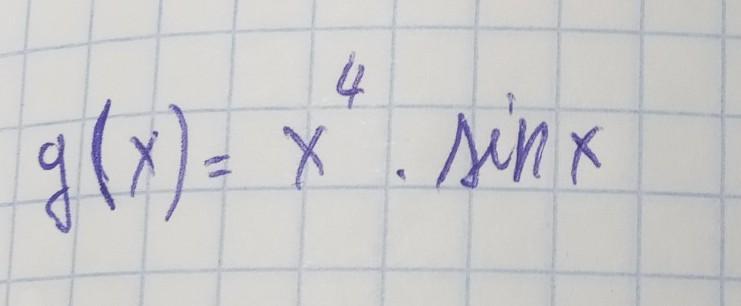 g(x) = x⁴ · sin x